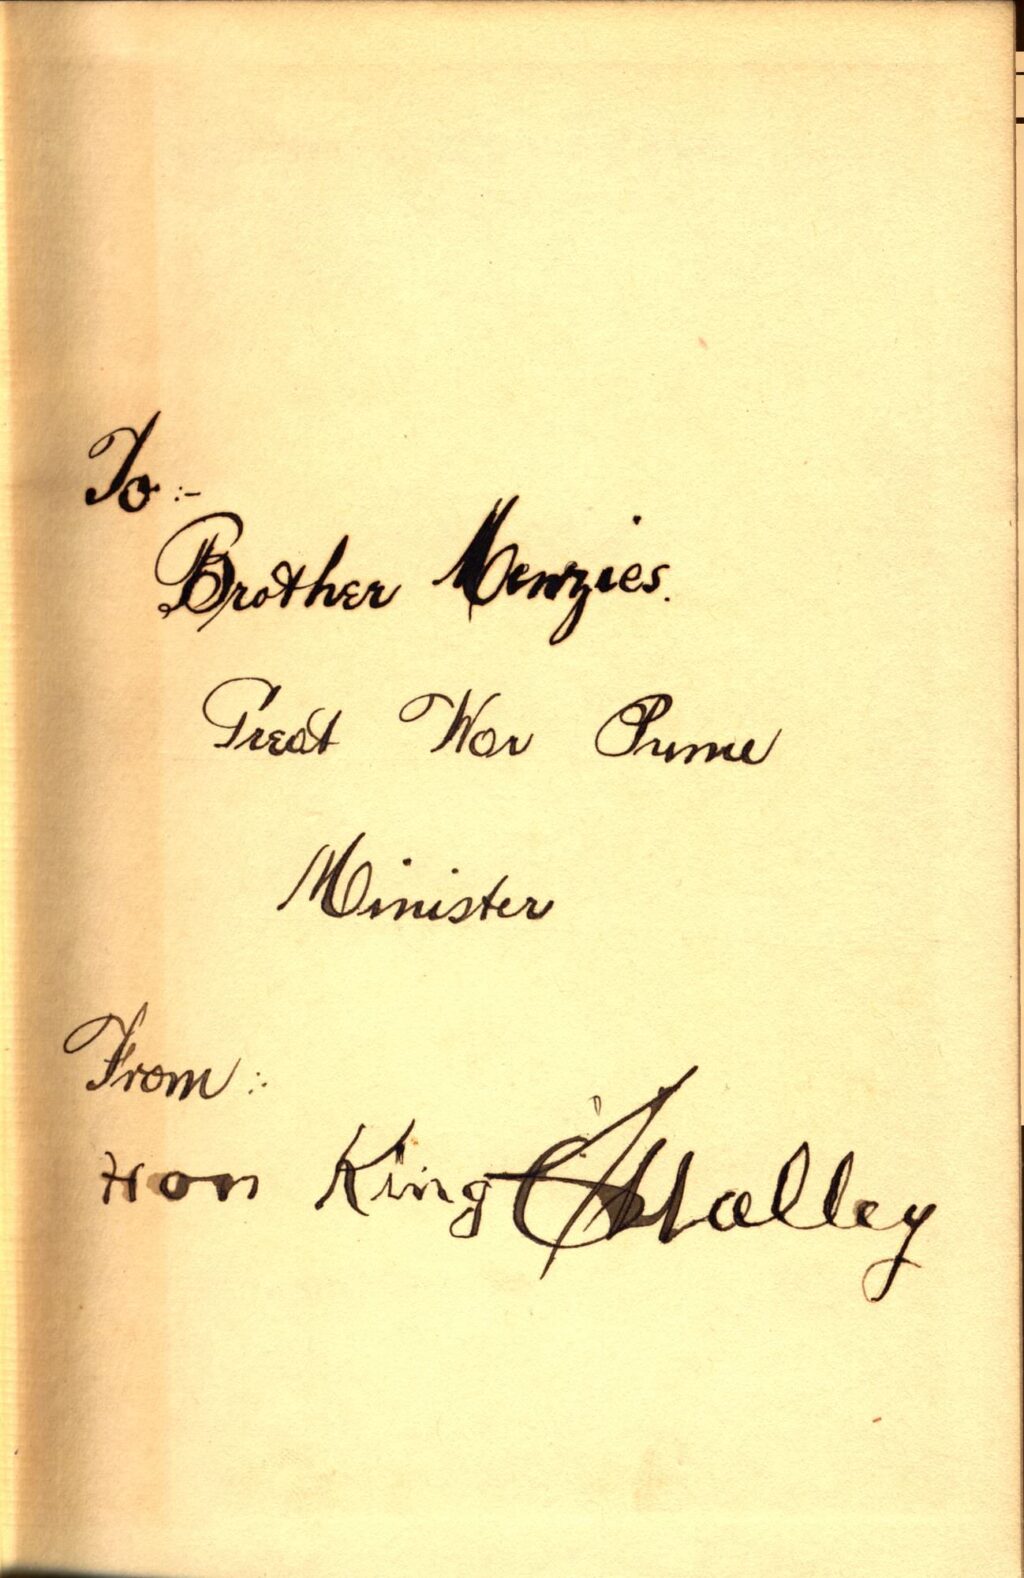 To :-
Brother Menzies.
Great War Prime
Minister
From :.
Hon King O'Malley